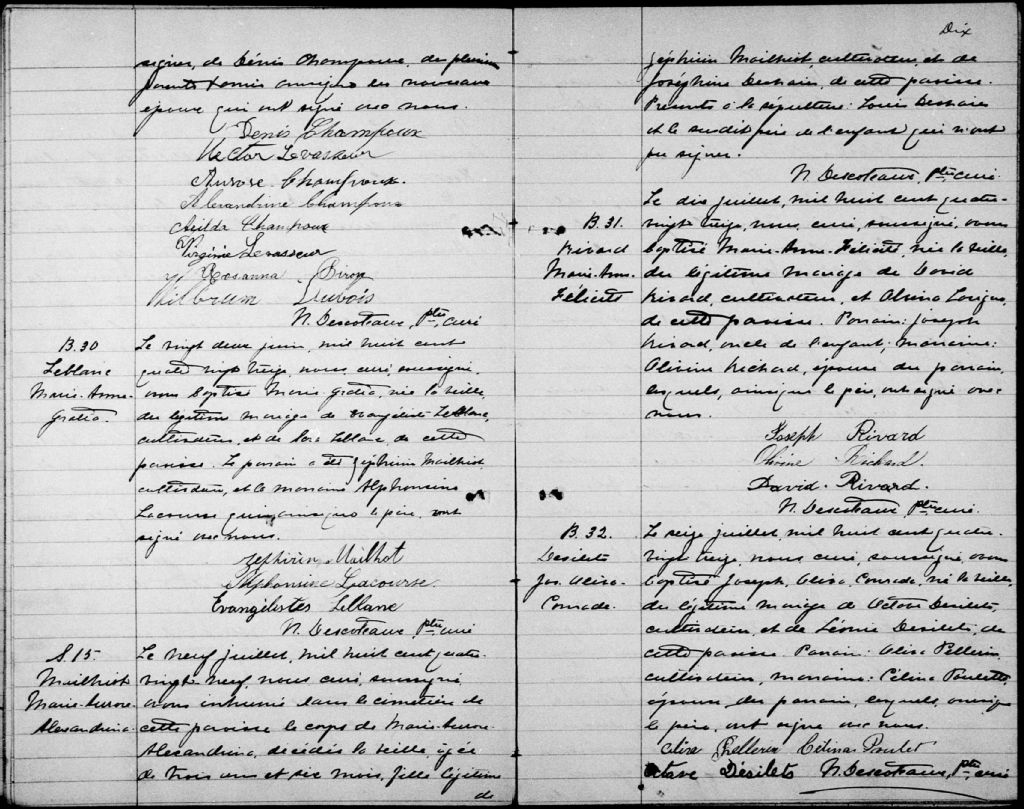 signer, de Dénis Champoux, de plusieurs
parents & amis ainsi que les nouveaux
époux qui ont signé avec nous.
Denis Champoux
Hector Levasseur
Aurore Champoux.
Alexandrine Champoux
Anilda Champoux
Virginie Levasseur
Rosanna Biron
Dubois
N. Descoteaux, ptre, curé
B. 30
Leblanc
Marie-Anne-
Gratia.
Le vingt deux juin, mil huit cent
quatre vingt treize, nous, curé, soussigné,
avons baptisé Marie Gratia, née la veille,
du légitime mariage de Evangéliste Leblanc,
cultivateur, et de Leblanc, de cette
paroisse. Le parrain a été Zéphirin Mailhiot
cultivateur, et la marraine Alphonsine
Lacourse qui, ainsi que le père, ont
signé avec nous.
Zephirin Mailhot
Alphonsine Lacourse.
Evangelistes LeBlanc
N. Descoteaux ptre curé
S. 15.
Mailhiot
Marie-Aurore-
Alexandrina.
Le neuf juillet, mil huit cent quatre-
vingt neuf, nous curé, soussigné
avons inhumé dans le cimetière de
cette paroisse le corps de Marie-Aurore-
Alexandrina, décédée la veille, âgée
de trois ans et six mois, fille légitime
de
Dix
Zéphirin Mailhiot, cultivateur, et de
Joséphine Deshaies de cette paroisse.
Présents à la sépulture: Louis Deshaies
et le susdit père de l'enfant qui n'ont
pu signer.
N. Descoteaux, ptre curé
B. 31.
Rivard
Marie-Anne-
Félicité
Le dix juillet, mil huit cent quatre-
vingt treize, nous, curé, soussigné, avons
baptisé Marie-Anne-Félicité, née la veille,
du légitime mariage de David
Rivard, cultivateur, et Alvina
de cette paroisse. Parrain: Joseph
Rivard, oncle de l'enfant; marraine:
Olivine Richard, épouse du parrain,
lesquels, ainsi que le père, ont signé avec
nous.
Joseph Rivard
Olivine Richard.
David Rivard.
N. Descoteaux, ptre curé.
B. 32.
Desilets
Jos. Alisa-
Conrade.
Le seize juillet, mil huit cent quatre-
vingt treize, nous curé, soussigné avons
baptisé Joseph, Conrade, né la veille,
du légitime mariage de Octave Desilets,
cultivateur, et de Léonie Desilets, de
cette paroisse. Parrain: Pellerin
cultivateur, marraine: Célina Poulette
épouse, du parrain, lesquels, ainsi que
le père, ont signé avec nous.
Pellerin Célina Poulet
Octave Désilets N. Descoteaux, ptre, curé